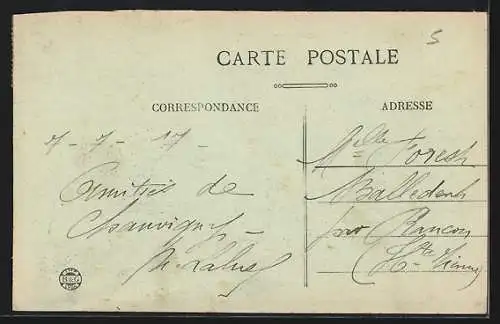 5
CARTE POSTALE
CORRESPONDANCE
ADRESSE
7 - 7 - 17 -
Amitiés de
Chauvigny
Melle Forest
Balledent
par Rancon
(Hte Vienne)
B&G